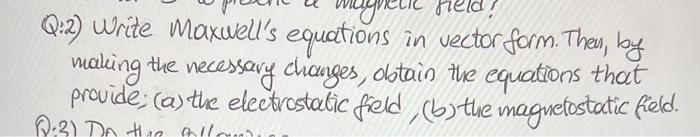 a magnetic field?
Q:2) Write Maxwell's equations in vector form. Then, by
making the necessary changes, obtain the equations that
provide; (a) the electrostatic field, (b) the magnetostatic field.
Q:3) Do the